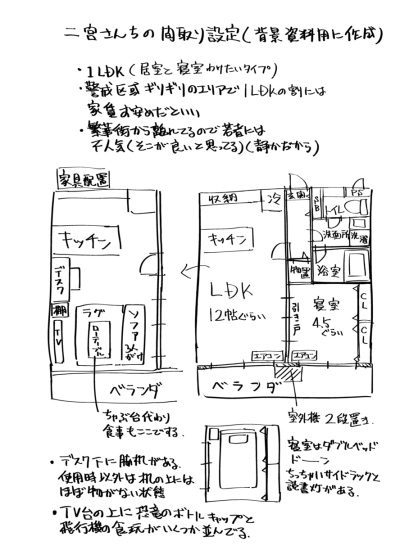 二宮さんちの間取り設定(背景資料用に作成)
・1LDK(居室と寝室わりたいタイプ)
・警戒区域ギリギリのエリアで1LDKの割には
家賃お安めだといい
・繁華街から離れてるので若者には
不人気(そこが良いと思ってる)(静かだから)
家具配置
キッチン
デスク
棚
TV
ラグ
ローテーブル
ソファ
ベランダ
ちゃぶ台代わり
食事もここでする.
収納
冷
玄関
PS
トイレ
洗面所
洗濯
キッチン
物置
浴室
LDK
12帖ぐらい
引き戸
寝室
4.5
ぐらい
CL
CL
エアコン
エアコン
ベランダ
室外機 2段置き.
寝室はダブルベッド
ドーン
ちっちゃいサイドラックと
読書灯がある.
・デスク下に脇机がある.
使用時以外は机の上には
ほぼ物がない状態
・TV台の上に恐竜のボトルキャップと
飛行機の食玩がいくつか並んでる.